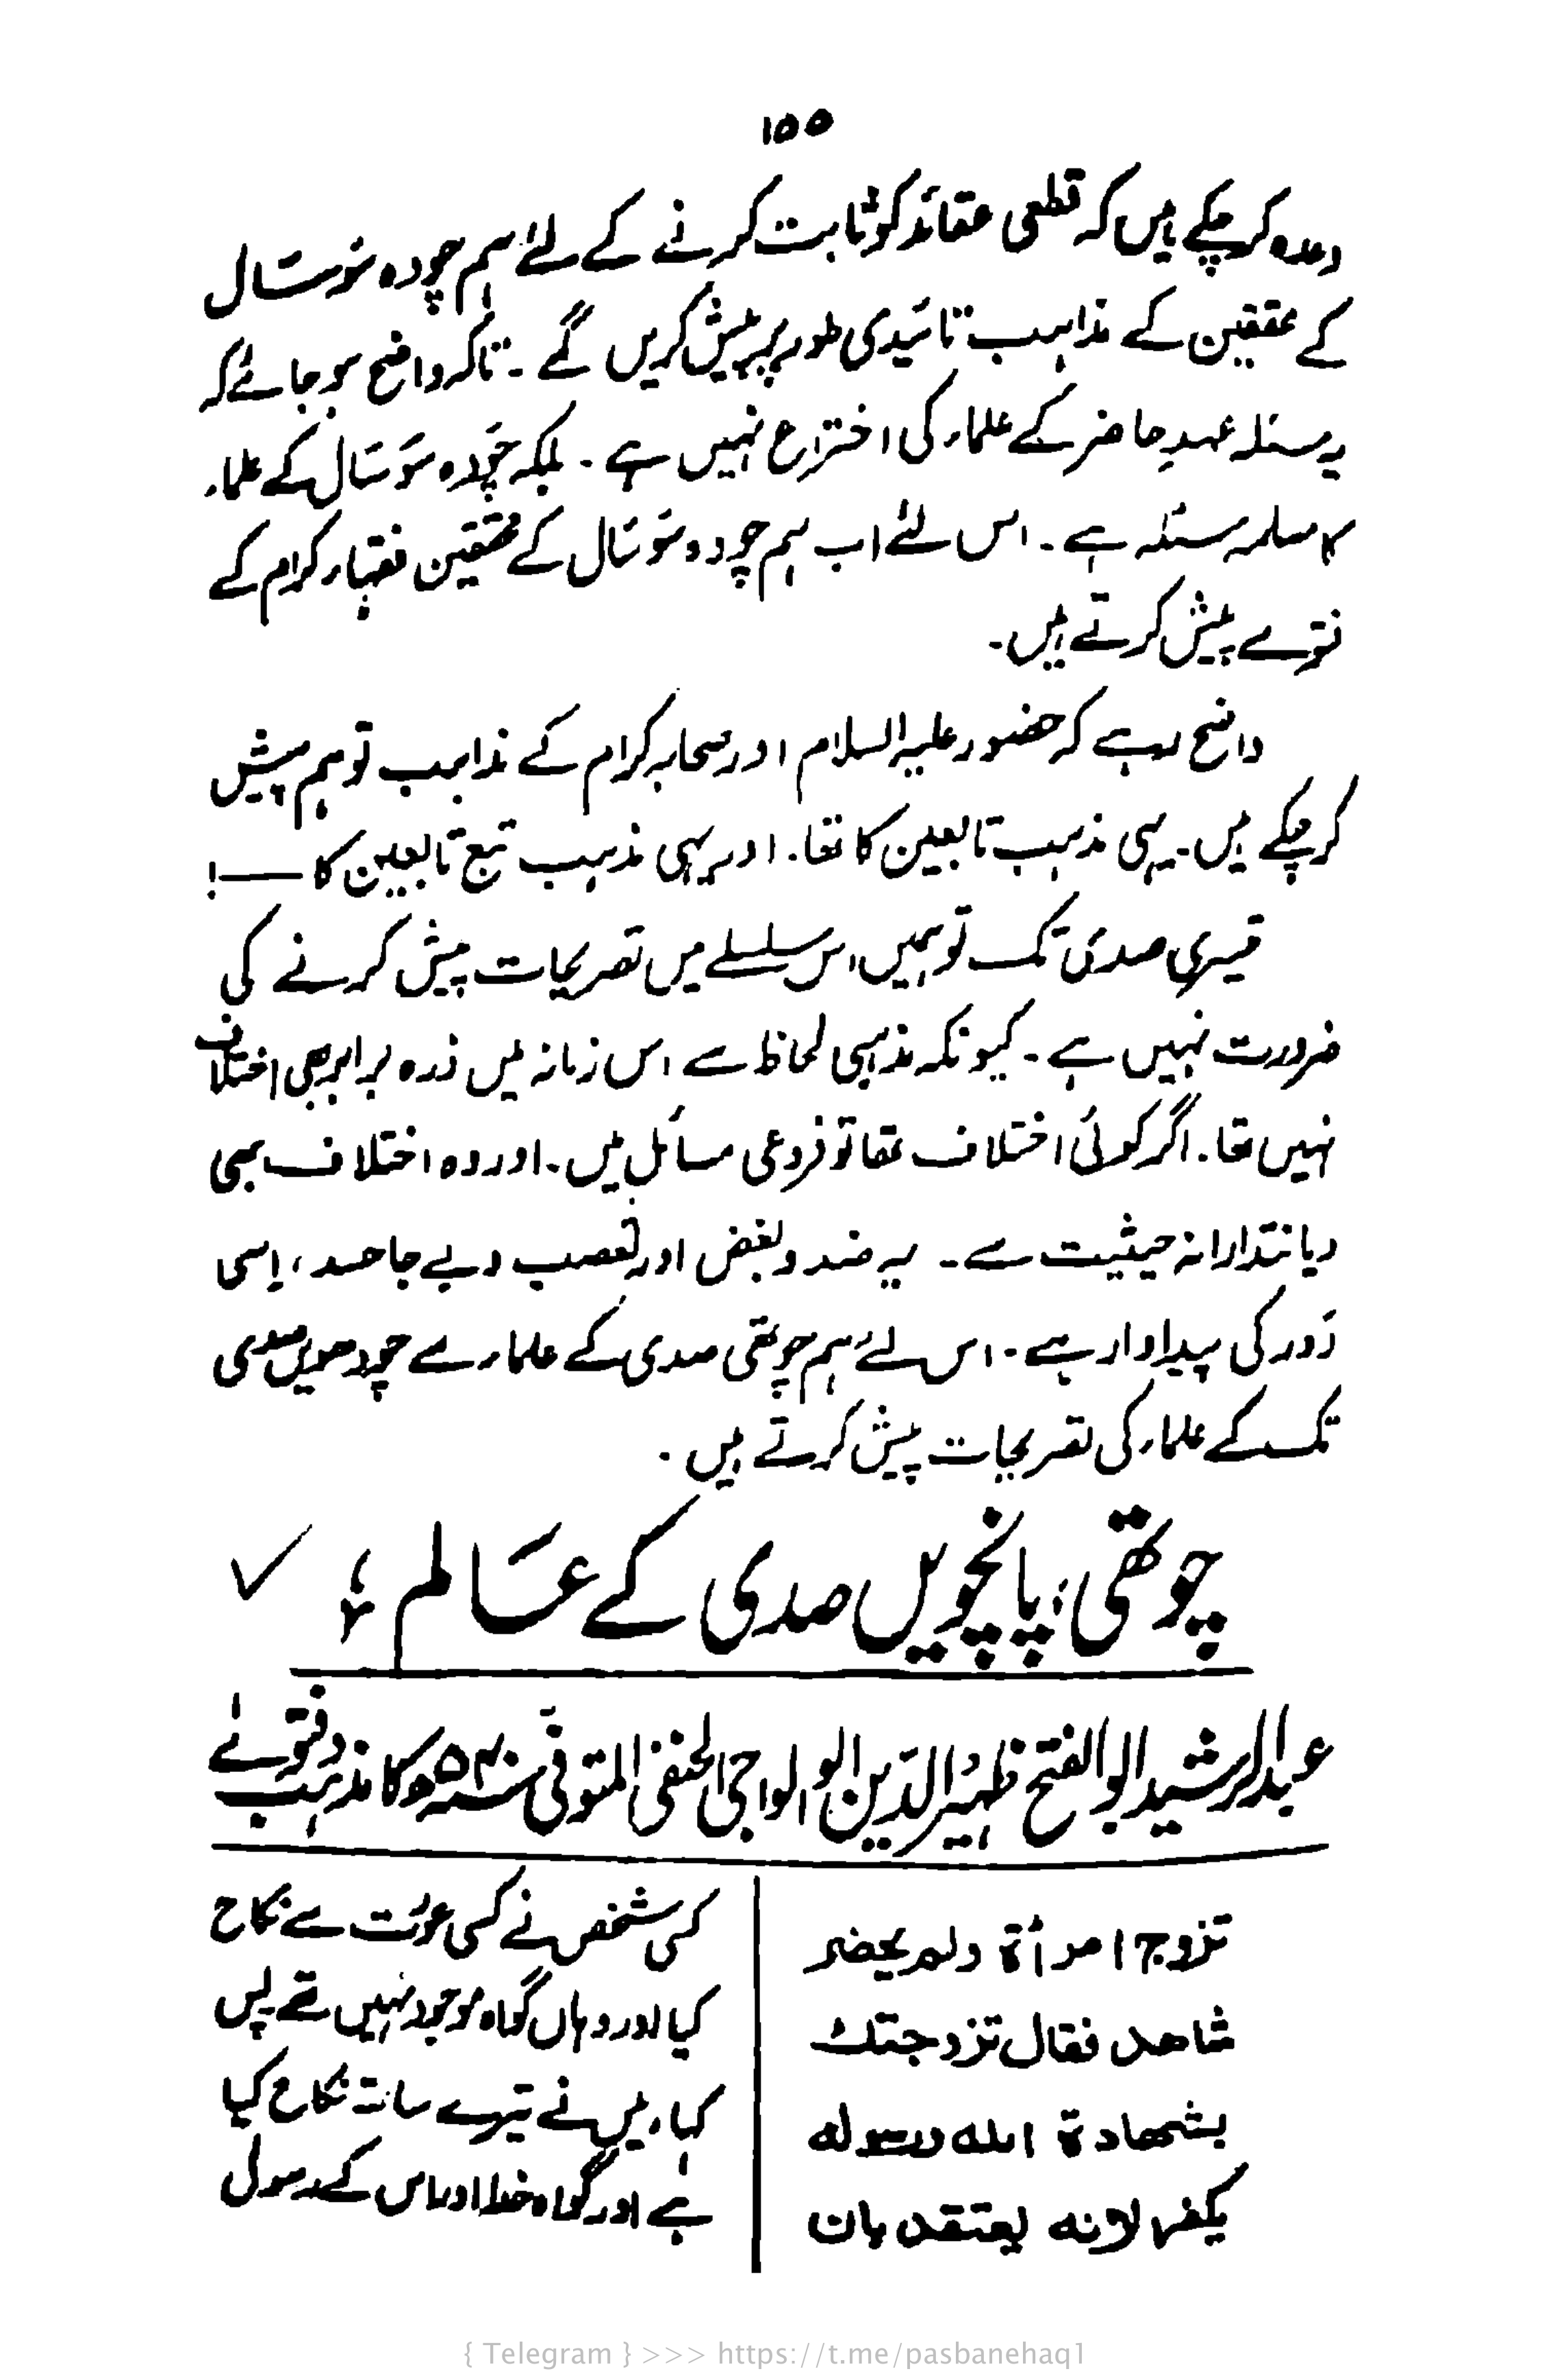 ۱۵۵
وعدہ کر چکے ہیں کہ قطعی عقائد کو ثابت کرنے کے لئے ہم چودہ سو سال
کے محققین کے مذاہب تائیدی طور پر پیش کریں گے ۔ تاکہ واضح ہو جائے کہ
یہ مسئلہ عہدِ حاضر کے علماء کی اختراع نہیں ہے ۔ بلکہ چودہ سو سال کے علماء
کا مسلمہ مسئلہ ہے ۔ اس لئے اب ہم چودہ سو سال کے محققین فقہاء کرام کے
فتوے پیش کرتے ہیں ۔
واضح رہے کہ حضور علیہ السلام اور صحابہ کرام کے مذاہب تو ہم پیش
کر چکے ہیں ۔ یہی مذہب تابعین کا تھا ۔ اور یہی مذہب تبع تابعین کا ——!
تیسری صدی تک تو ہمیں اس سلسلے میں تصریحات پیش کرنے کی
ضرورت نہیں ہے ۔ کیونکہ مذہبی لحاظ سے اس زمانہ میں ذرہ برابر بھی اختلاف
نہیں تھا ۔ اگر کوئی اختلاف تھا تو فروعی مسائل میں ۔ اور وہ اختلاف بھی
دیانتدارانہ حیثیت سے ۔ یہ ضد و بغض اور تعصب و بے جا حسد ، اِسی
دَور کی پیداوار ہے ۔ اس لئے ہم چوتھی صدی کے علماء سے چودھویں صدی
تک کے علماء کی تصریحات پیش کرتے ہیں ۔
چوتھی، پانچویں صدی کے عالم ؛ ✓
عبدالرشید ابوالفتح ظہیرالدین الولوالجی الحنفی المتوفی سنہ ۵۴۰ھ کا مذہب و فتوےٰ
تزوج امرأة ولم يحضر
شاهد فقال تزوجتك
بشهادة الله ورسوله
يكفر لانه يعتقد بان
کسی شخص نے کسی عورت سے نکاح
کیا اور وہاں گواہ موجود نہیں تھے پس
کہا ، میں نے تیرے ساتھ نکاح کیا
ہے اور گواہ خدا اور اس کے رسول
{ Telegram } >>> https://t.me/pasbanehaq1